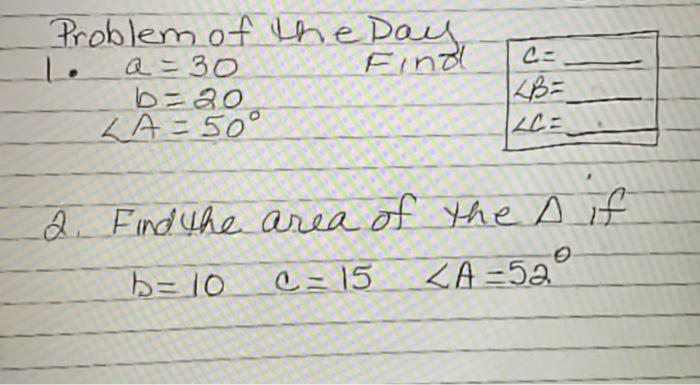 Problem of the Day
1. a = 30 Find
b = 20
∠A = 50°
c = ____
∠B = ____
∠C = ____
2. Find the area of the Δ if
b = 10 c = 15 ∠A = 52°